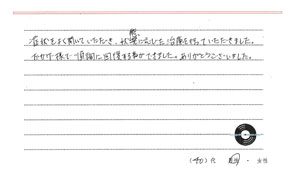 症状をよく聞いていただき、状態に応じた治療を行っていただきました。
おかげ様で順調に回復する事ができました。ありがとうございました。
(40)代 男性・女性